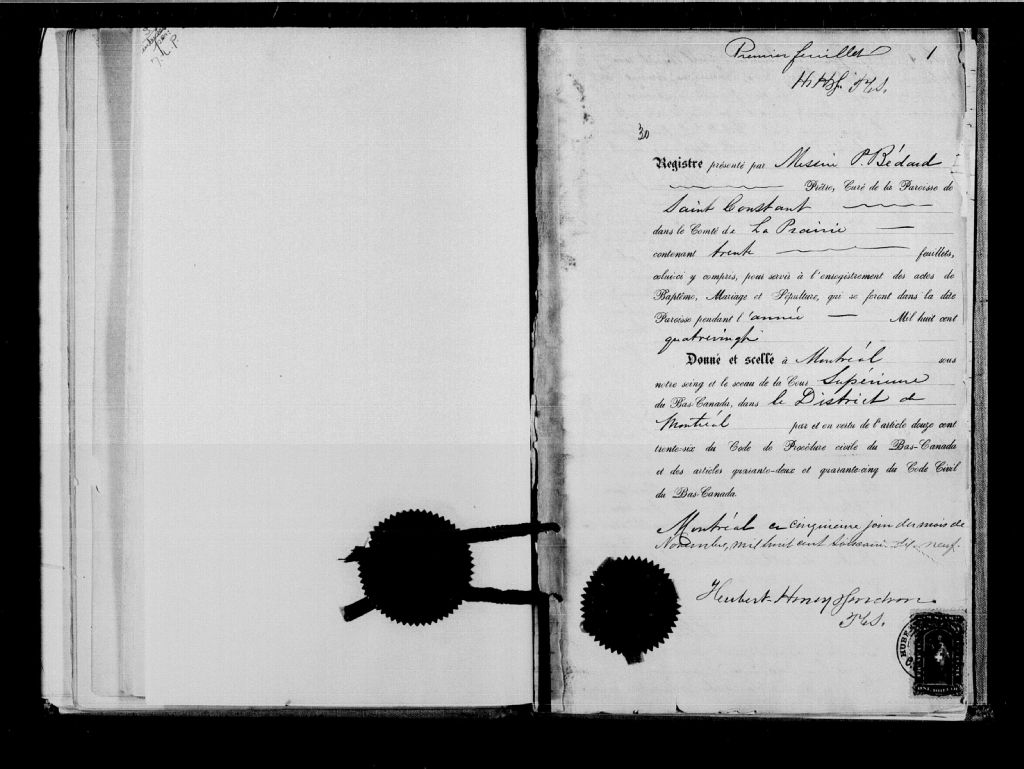 J. L. P
Premier feuillet 1
30
Registre présenté par Messire P. Bédard
Prêtre, Curé de la Paroisse de
Saint Constant
dans le Comté de La Prairie
contenant trente feuillets,
celui-ci y compris, pour servir à l'enregistrement des actes de
Baptême, Mariage et Sépulture, qui se feront dans la dite
Paroisse pendant l'année Mil huit cent
quatrevingt
Donné et scellé à Montréal sous
notre seing et le sceau de la Cour Supérieure
du Bas-Canada, dans le District de
Montréal par et en vertu de l'article douze cent
trente-six du Code de Procédure civile du Bas-Canada
et des articles quarante-deux et quarante-cinq du Code Civil
du Bas-Canada.
Montréal ce cinquième jour du mois de
Novembre, mil huit cent soixante dix neuf.
HUBE
ONE DOLLAR